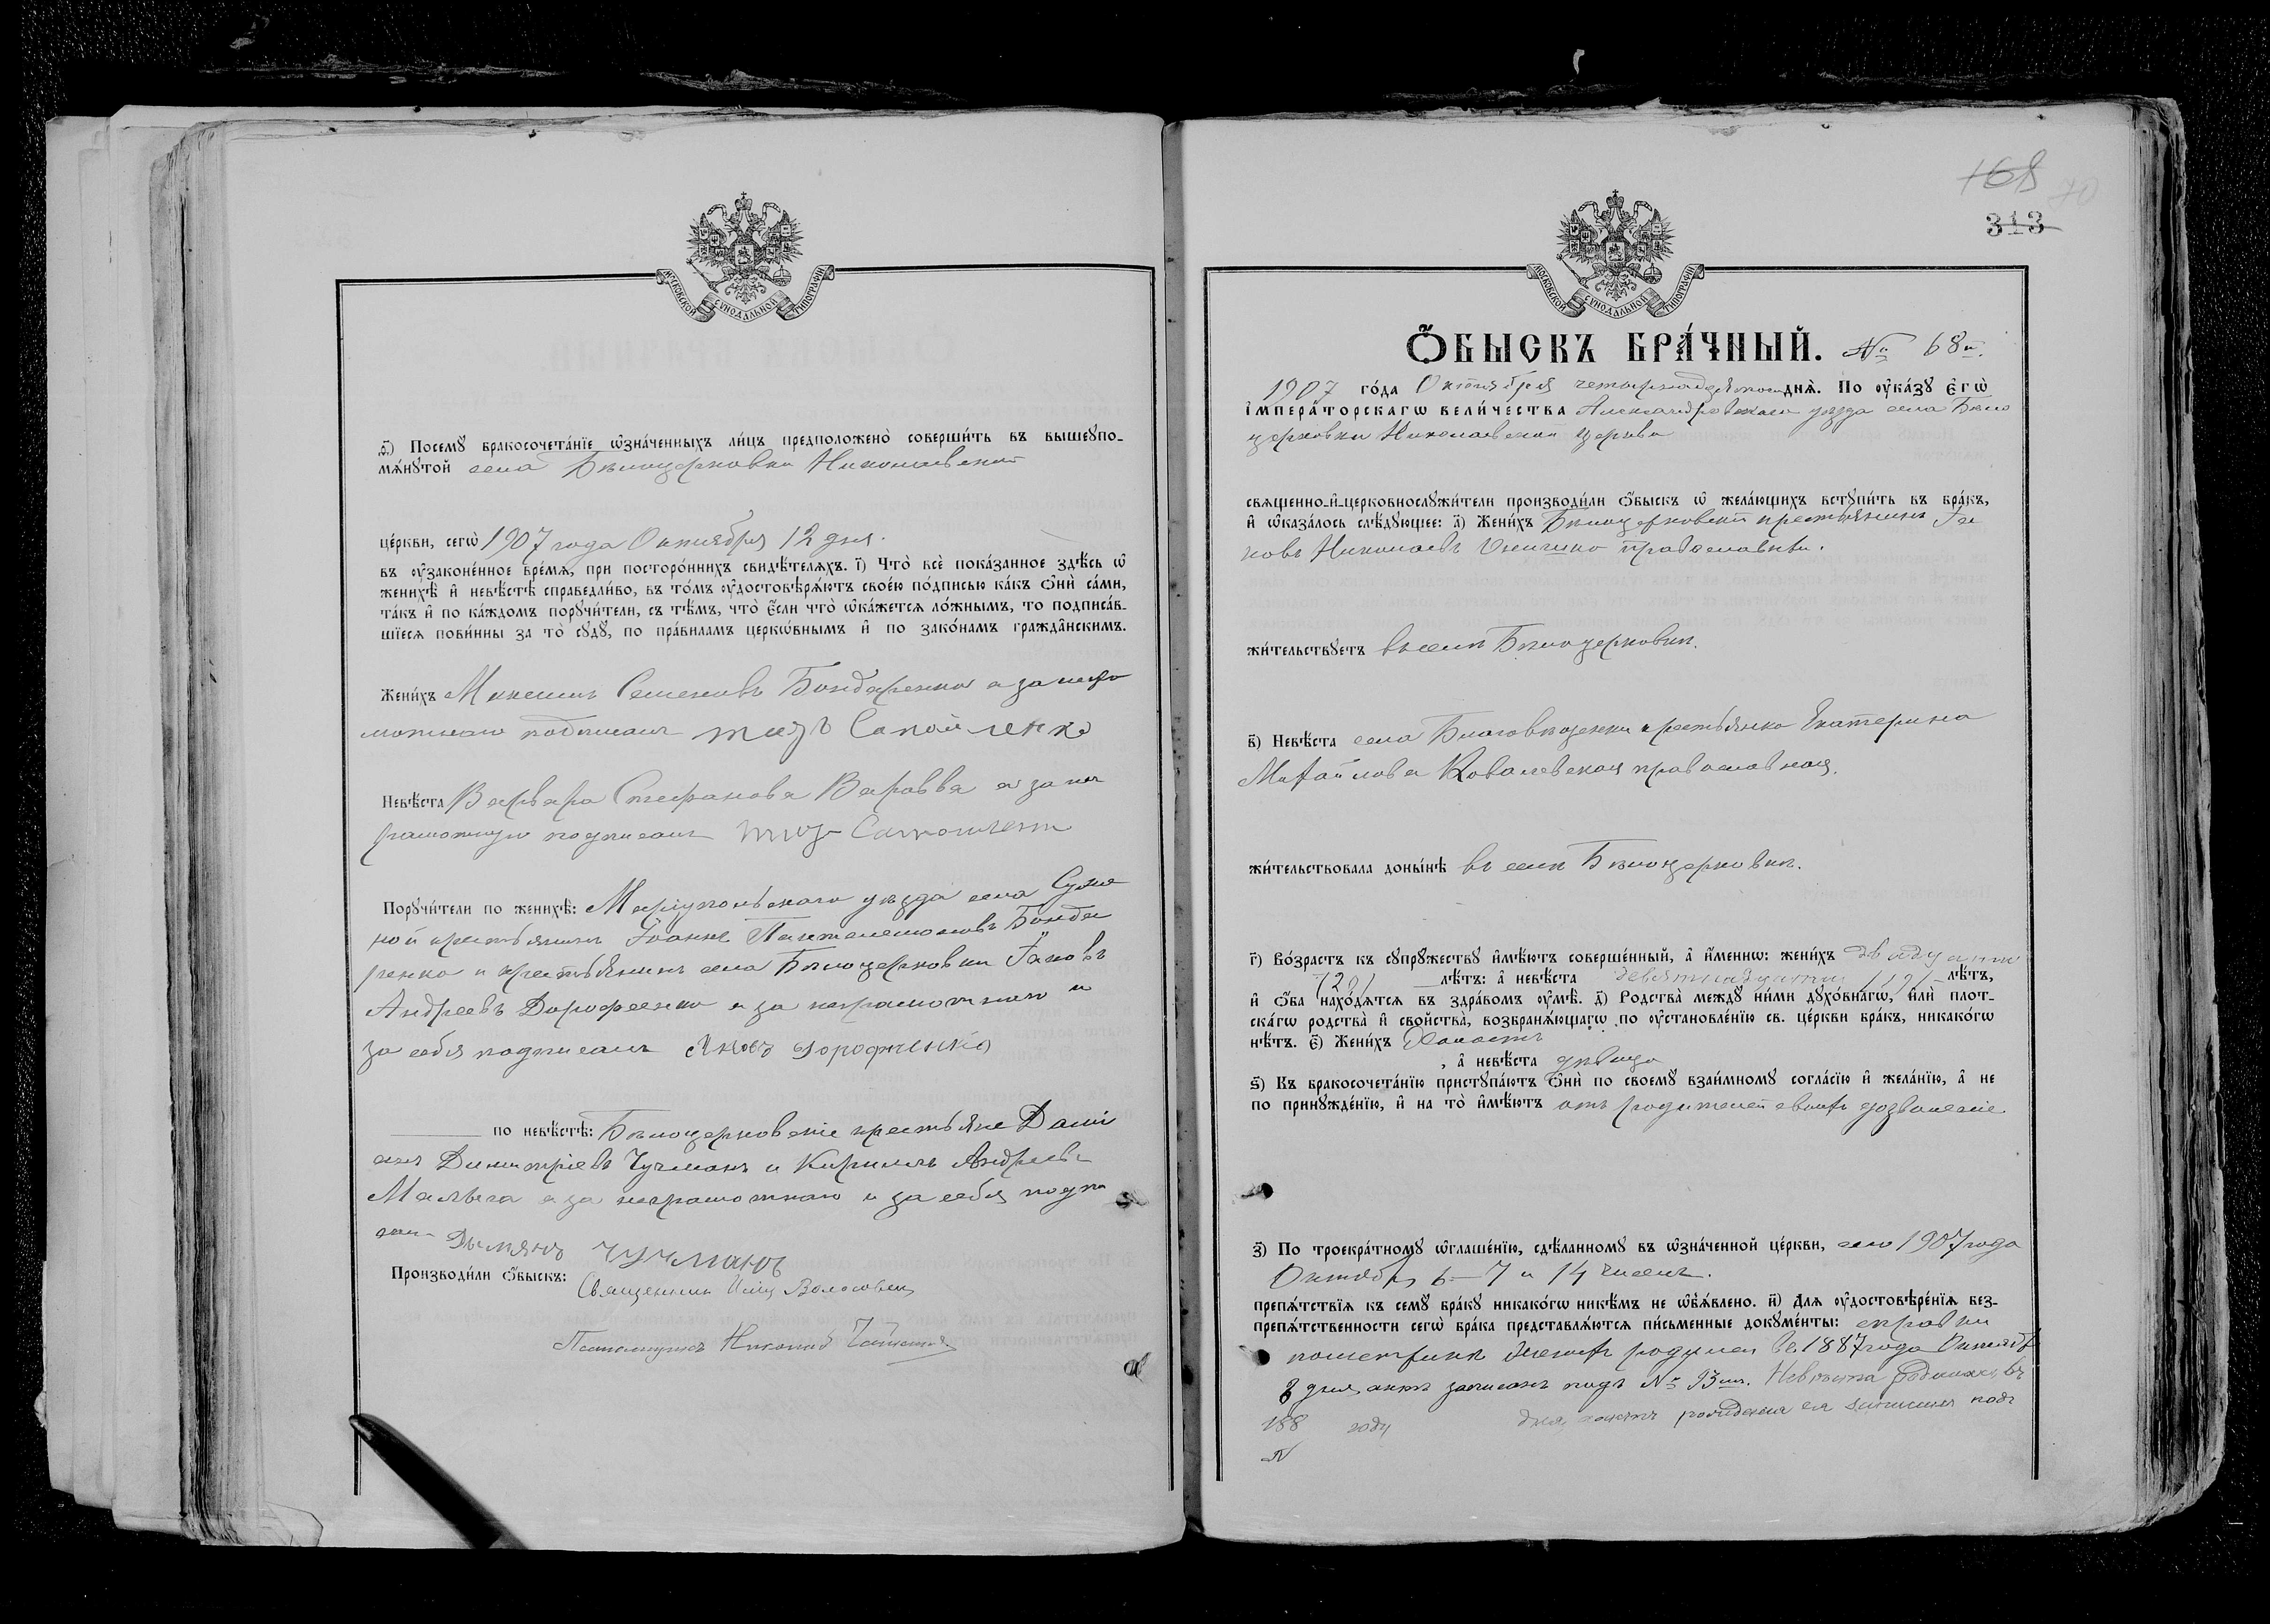 МОСКОВСКОЙ СѴНОДАЛЬНОЙ ТИПОГРАФІИ
ѳ҃) Посемꙋ бракосочета́нїе ѡ҆зна́ченныхъ ли́цъ предположено̀ соверши́ть въ вышеꙋпо-
мѧ́нꙋтой села Бѣлоцерковки Николаевской
це́ркви, сегѡ̀ 1907 года Октября 12 дня.
въ ᲂу҆законе́нное вре́мѧ, при посторо́ннихъ свидѣ́телѧхъ. і҃) Что̀ всѐ пока́занное здѣ́сь ѡ҆
женихѣ̀ и҆ невѣ́стѣ справедли́во, въ то́мъ ᲂу҆достовѣрѧ́ютъ свое́ю по́дписью ка́къ ѻ҆нѝ са́ми,
та́къ и҆ по ка́ждомъ порꙋчи́тели, съ тѣ́мъ, что̀ є҆́сли что̀ ѡ҆ка́жетсѧ ло́жнымъ, то подписа́в-
шїесѧ пови́нны за то̀ сꙋдꙋ̀, по пра́виламъ церкѡ́внымъ и҆ по зако́намъ гражда́нскимъ.
Жени́хъ Максимъ Семеновъ Бондаренко а за негра
мотнаго подписалъ
Невѣ́ста Варвара Стефанова Варовва а за не
грамотную подписалъ
Порꙋчи́тели по женихѣ̀: Маріупольскаго уѣзда села
ной крестьянинъ Іоаннъ Пантелеимоновъ Бонда
ренко и крестьянинъ села Бѣлоцерковки Іаковъ
Андреевъ Дорофеенко а за неграмотнаго и
за себя подписалъ Яковъ Дорофѣенко
по невѣ́стѣ: Бѣлоцерковскіе крестьяне
Димитріевъ Чучманъ и Кириллъ Андреевъ
а за неграмотнаго и за себя подпи
салъ Чучманъ
Производи́ли ѻ҆́быскъ: Священникъ
Псаломщикъ
168
70
313
МОСКОВСКОЙ СѴНОДАЛЬНОЙ ТИПОГРАФІИ
Ѻ҆́БЫСКЪ БРА́ЧНЫЙ. № 68й.
1907 го́да Октября четырнадцатого днѧ̀. По ᲂу҆ка́зꙋ є҆гѡ̀
і҆мпера́торскагѡ вели́чества Александровскаго уѣзда села Бѣло
церковки Николаевской церкви
свѧщенно-и҆-церковнослꙋжи́тели производи́ли ѻ҆́быскъ ѡ҆ жела́ющихъ встꙋпи́ть въ бра́къ,
и҆ ѡ҆каза́лось слѣ́дꙋющее: а҃) Жени́хъ Бѣлоцерковскій крестьянинъ Іа
ковъ Николаевъ православный.
жи́тельствꙋетъ въ селѣ Бѣлоцерковкѣ.
в҃) Невѣ́ста села Благовѣщенки крестьянка Екатерина
Михайлова Ковалевская православная.
жи́тельствовала доны́нѣ въ селѣ Бѣлоцерковкѣ.
г҃) Во́зрастъ къ сꙋпрꙋ́жествꙋ и҆мѣ́ютъ соверше́нный, а҆ и҆́меннѡ: жени́хъ двадцати
/20/ лѣ́тъ: а҆ невѣ́ста девятнадцати /19/ лѣ́тъ,
и҆ ѻ҆́ба нахо́дѧтсѧ въ здра́вомъ ᲂу҆мѣ̀. д҃) Родства̀ междꙋ ни́ми дꙋхо́внагѡ, и҆лѝ плот-
ска́гѡ родства̀ и҆ сво́йства, возбранѧ́ющагѡ по ᲂу҆становле́нїю св. це́ркви бра́къ, никако́гѡ
нѣ́тъ. є҃) Жени́хъ холостъ
, а҆ невѣ́ста дѣвица
ѕ҃) Къ бракосочета́нїю пристꙋпа́ютъ ѻ҆нѝ по своемꙋ̀ взаи́мномꙋ согла́сїю и҆ жела́нїю, а҆ не
по принꙋжде́нїю, и҆ на то̀ и҆мѣ́ютъ отъ родителей своихъ дозволеніе
з҃) По троекра́тномꙋ ѡ҆глаше́нїю, сдѣ́ланномꙋ въ ѡ҆зна́ченной це́ркви, сего 1907 года
Октября 6 – 7 и 14 числъ.
препѧ́тствїѧ къ семꙋ̀ бра́кꙋ никако́гѡ никѣ́мъ не ѡ҆б̾ѧ́влено. и҃) Длѧ ᲂу҆достовѣре́нїѧ без-
препѧ́тственности сегѡ̀ бра́ка представлѧ́ютсѧ пи́сьменные докꙋме́нты: справки
по метрикѣ женихъ родился въ 1887 году Октября
8 дня, актъ записанъ подъ № 93мъ. Невѣста родилась въ
188 году дня, актъ рожденія ея записанъ подъ
№